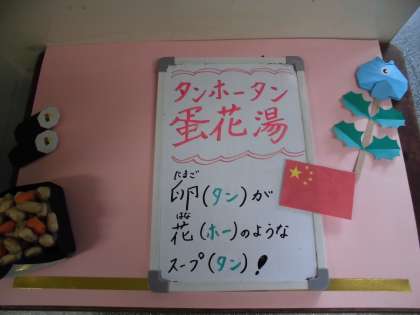 タンホータン
蛋花湯
たまご
卵(タン)が
はな
花(ホー)のような
スープ(タン)!